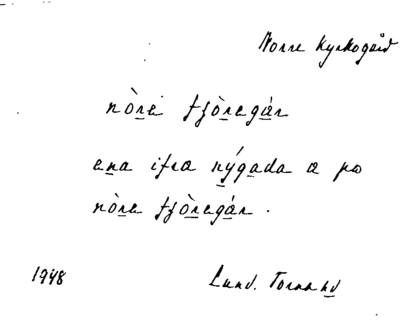 Norre Kyrkogård
nòre fzòregár
ena ifra nýgada a po
nòre fzòregár.
1948
Lund. Torna hd